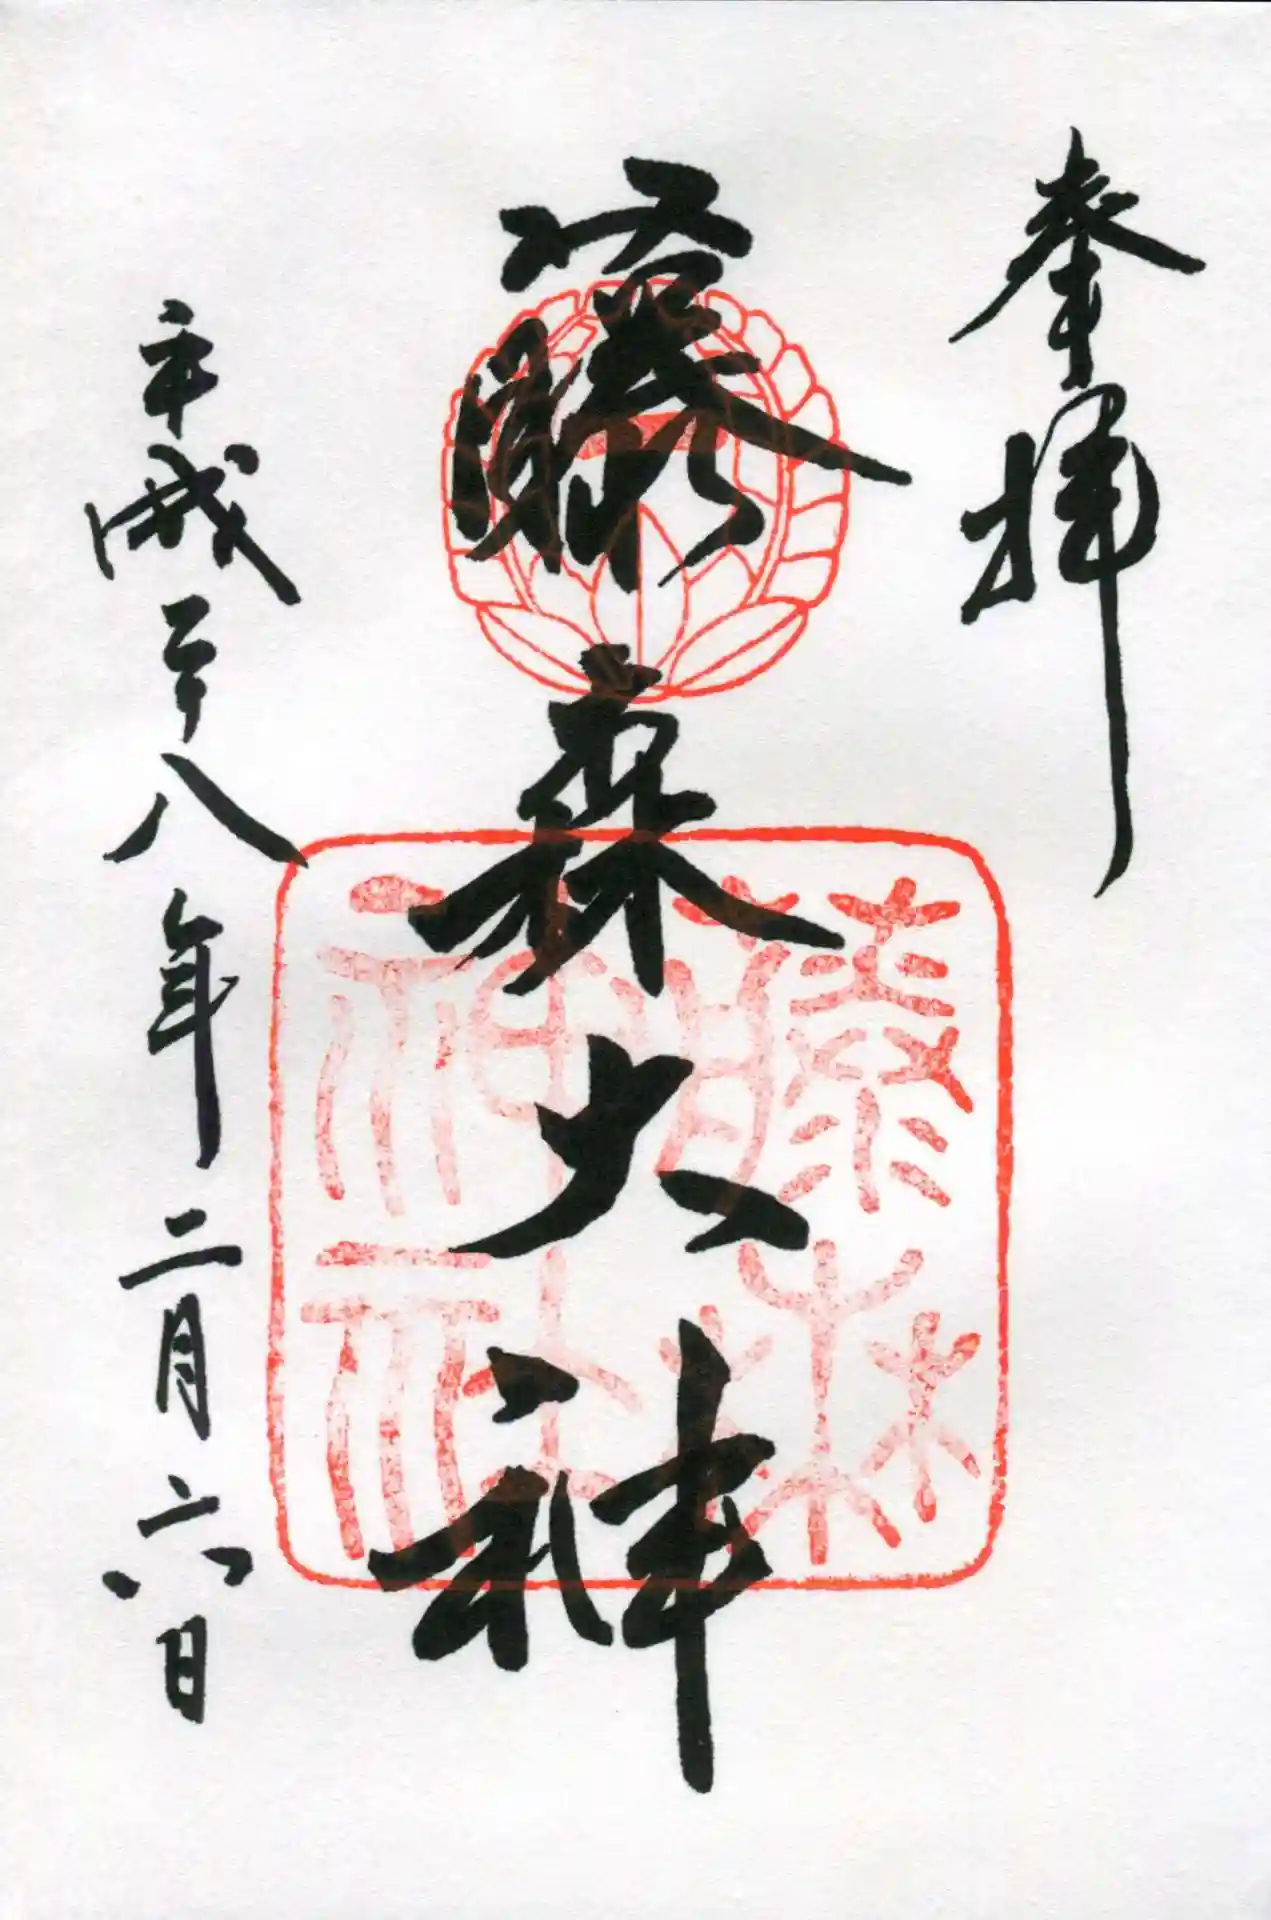 奉拝
藤森大神
平成二十八年二月六日
藤森神社